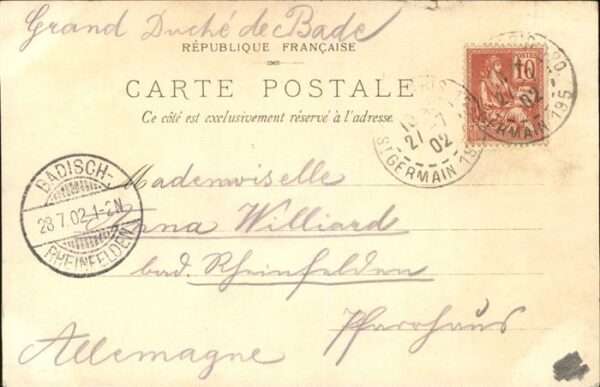 Grand Duché de Bade
RÉPUBLIQUE FRANÇAISE
CARTE POSTALE
Ce côté est exclusivement réservé à l'adresse.
10
POSTES
27
02
ST GERMAIN 195
02
GERMAIN 195
BADISCH-
28.7.02.1-2N
RHEINFELDEN
Mademoiselle
Anna Williard
bad. Rheinfelden
Pfarrhaus
Allemagne